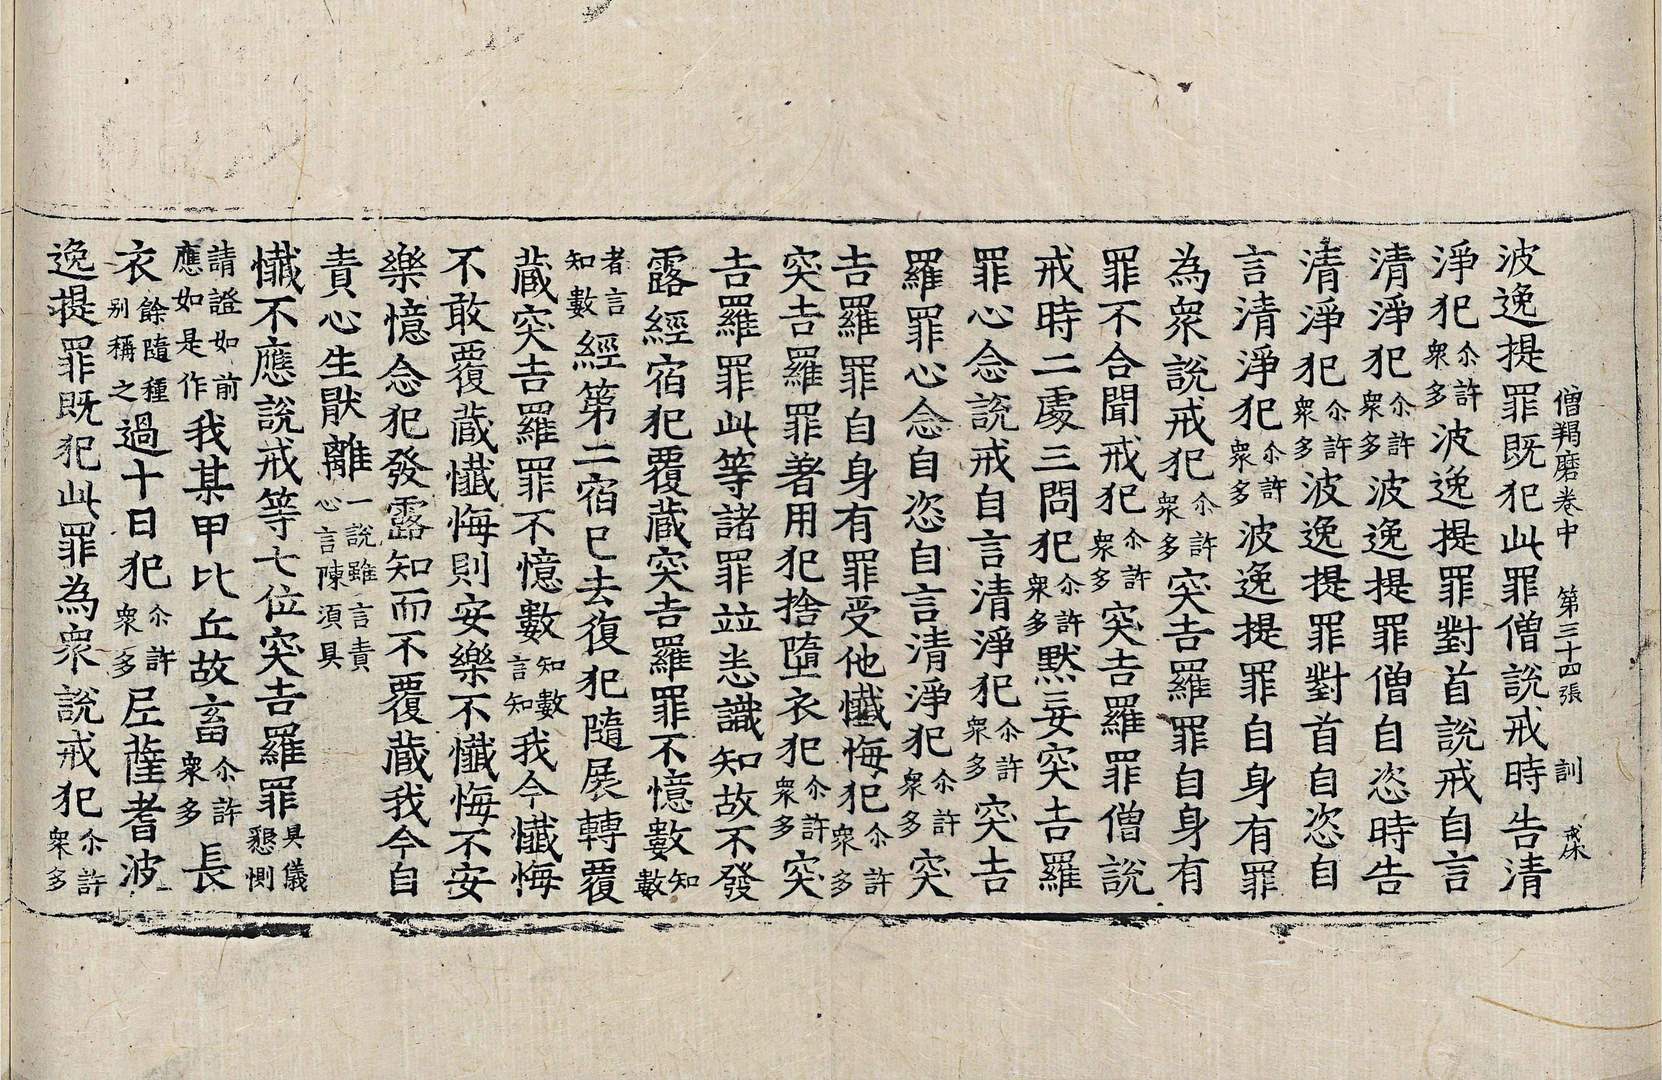 僧羯磨卷中 第三十四張 訓 戒床
波逸提罪既犯此罪僧說戒時告清
淨犯尒許衆多波逸提罪對首說戒自言
清淨犯尒許衆多波逸提罪僧自恣時告
清淨犯尒許衆多波逸提罪對首自恣自
言清淨犯尒許衆多波逸提罪自身有罪
為衆說戒犯尒許衆多突吉羅罪自身有
罪不合聞戒犯尒許衆多突吉羅罪僧說
戒時二處三問犯尒許衆多默妄突吉羅
罪心念說戒自言清淨犯尒許衆多突吉
羅罪心念自恣自言清淨犯尒許衆多突
吉羅罪自身有罪受他懺悔犯尒許衆多
突吉羅罪著用犯捨墮衣犯尒許衆多突
吉羅罪此等諸罪並恙識知故不發
露經宿犯覆藏突吉羅罪不憶數知數
者言知數經第二宿已去復犯隨展轉覆
藏突吉羅罪不憶數知數言知我今懺悔
不敢覆藏懺悔則安樂不懺悔不安
樂憶念犯發露知而不覆藏我今自
責心生猒離一說雖言責心言陳須具
懺不應說戒等七位突吉羅罪具儀懇惻
請證如前應如是作我某甲比丘故畜尒許衆多長
衣餘隨種別稱之過十日犯尒許衆多尼薩耆波
逸提罪既犯此罪為衆說戒犯尒許衆多